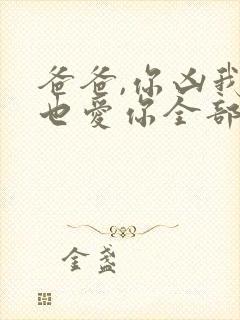 爸爸,你凶我
也爱你全部
金盏